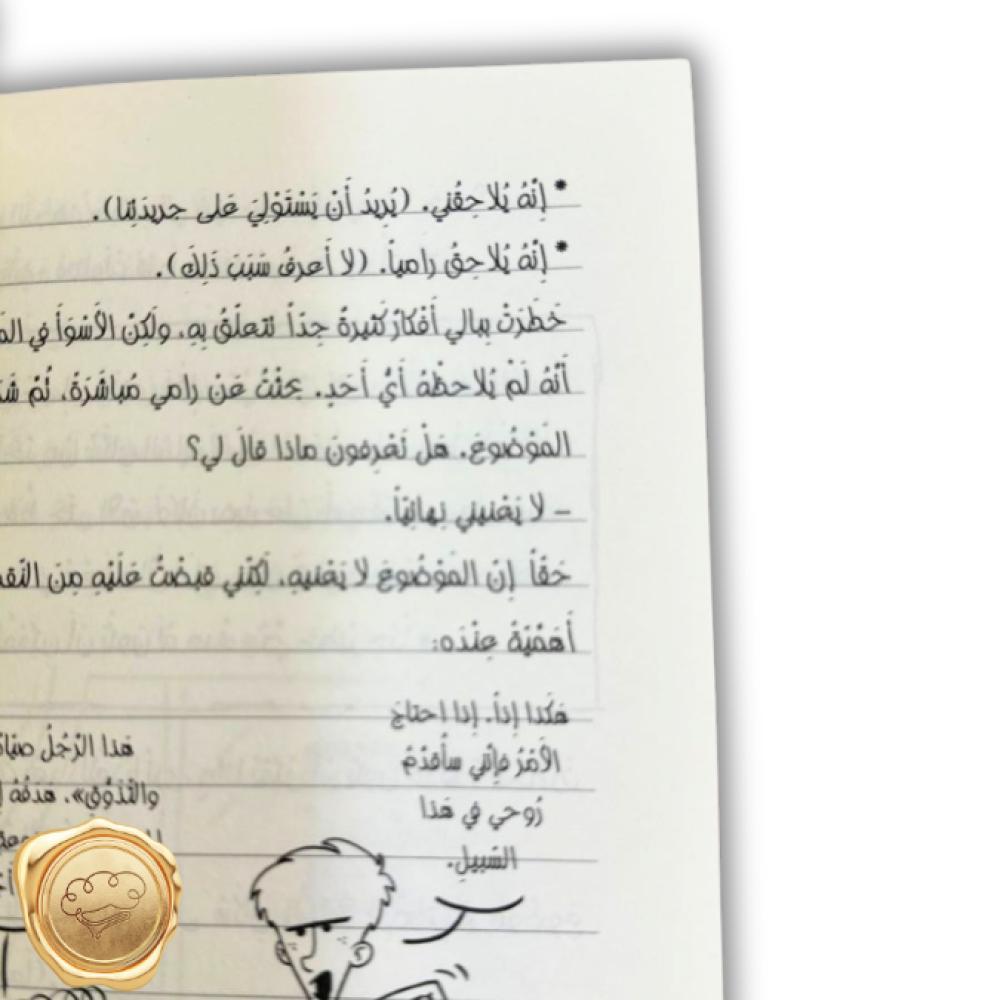 * إِنَّهُ يُلاحِقُني. (يُرِيدُ أَنْ يَسْتَوْلِيَ عَلى جريدَتِنا).
* إِنَّهُ يُلاحِقُ رامياً. (لا أَعرِفُ سَبَبَ ذَلِكَ).
خَطَرَتْ بِبالي أَفْكارٌ كَثيرةٌ جِدّاً تتعلّقُ بِهِ، ولَكِنّ الأَسْوَأَ في
أَنَّهُ لَمْ يُلاحظْهُ أَيُّ أَحَدٍ. بحثْتُ عَنْ رامي مُباشَرَةً، ثُمّ
المَوْضُوعَ. هَلْ تَعْرِفونَ ماذا قالَ لي؟
– لا يَعْنيني نِهائيّاً.
حَقّاً إِنّ المَوْضُوعَ لا يَعْنيهِ، لَكِنّني قبضْتُ عَلَيْهِ مِنَ
أَهَمّيّةً عِنْدَه:
هَكَذا إِذاً. إِذا احتاجَ
الأَمْرُ فإنّني سأُقدّمُ
رُوحي في هَذا
السّبيلِ.
هَذا الرّجُلُ
والتّذَوُّقِ». هَدَفُهُ